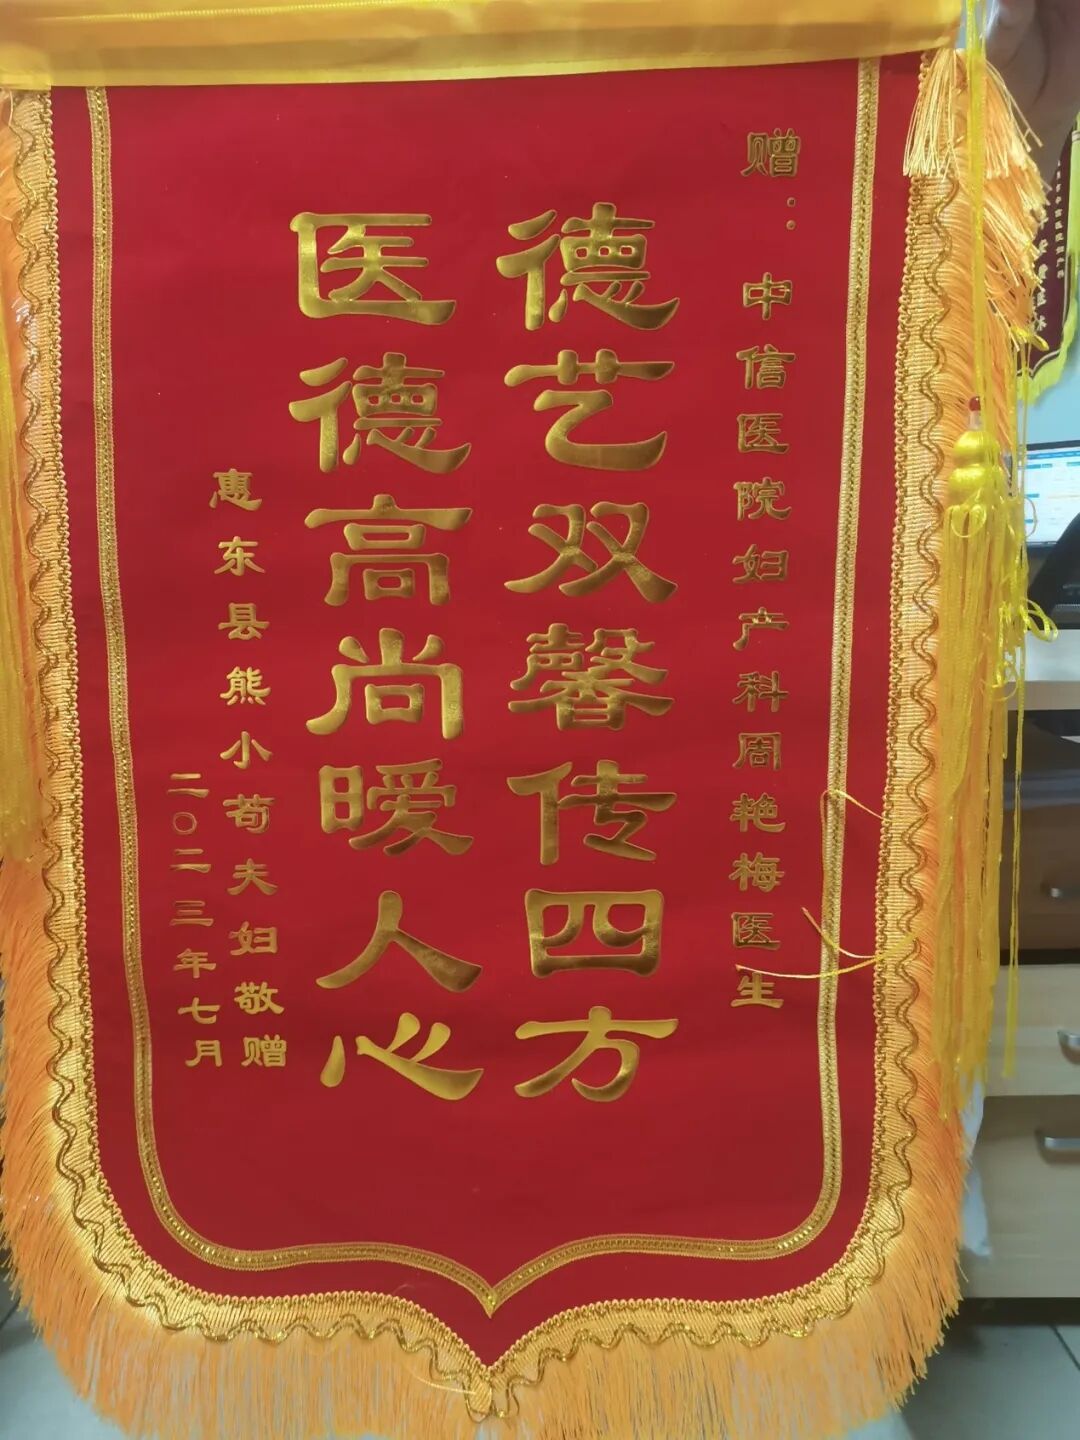 赠：中信医院妇产科周艳梅医生
德艺双馨传四方
医德高尚暧人心
惠东县熊小苟夫妇敬赠
二〇二三年七月